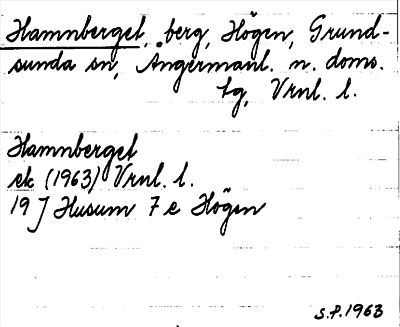 Hamnberget, berg, Högen, Grund-
sunda sn, Ångermanl. n. doms.
tg, Vrnl. l.
Hamnberget
ek (1963) Vrnl. l.
19 J Husum 7 e Högen
S.P. 1963